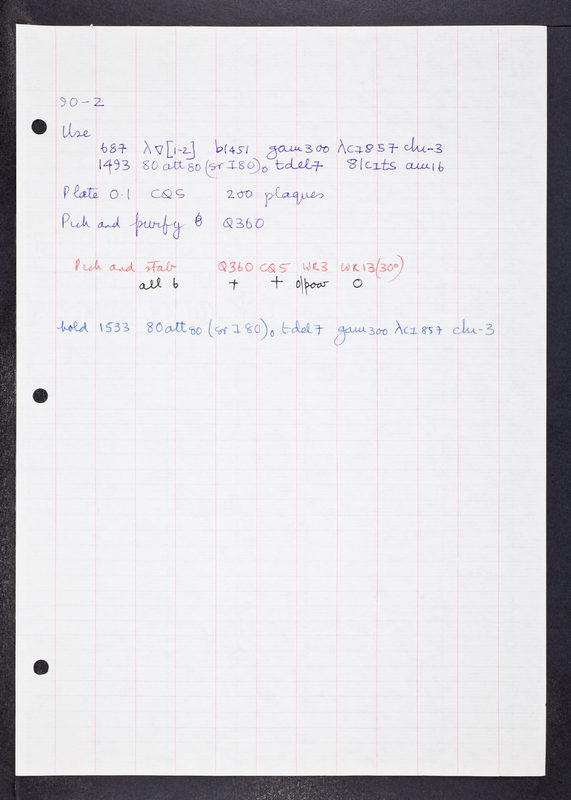 90-2
Use
687 λ∇[1-2] b1451 gam300 λcI857 chi-3
1493 80att80 (srI80)0 tdel7 81cIts am16
Plate 0.1 CQ5 200 plaques
Pick and purify 6 Q360
Pick and stab Q360 CQ5 WR3 WR13(30°)
all 6 + + 0/poor 0
hold 1533 80att80 (srI80)0 tdel7 gam300 λcI857 chi-3